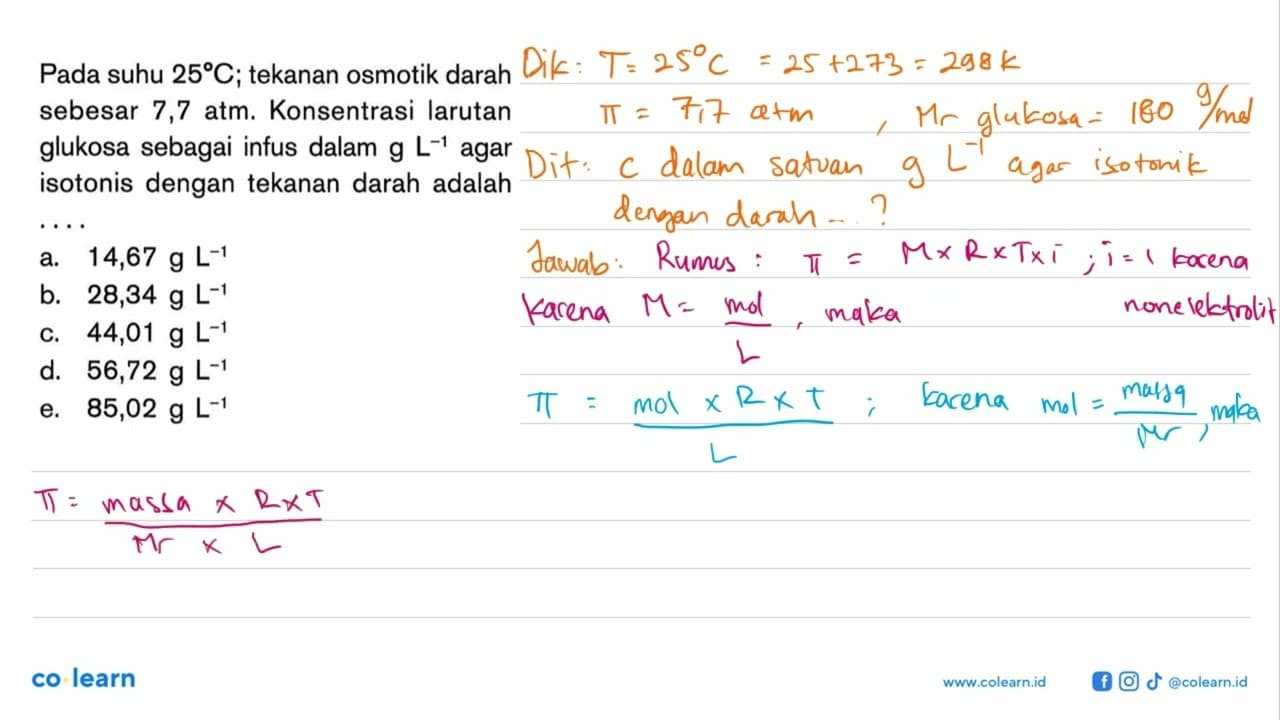 Pada suhu 25°C; tekanan osmotik darah
sebesar 7,7 atm. Konsentrasi larutan
glukosa sebagai infus dalam g L⁻¹ agar
isotonis dengan tekanan darah adalah
....
a. 14,67 g L⁻¹
b. 28,34 g L⁻¹
c. 44,01 g L⁻¹
d. 56,72 g L⁻¹
e. 85,02 g L⁻¹
Dik: T = 25°C = 25 + 273 = 298 K
π = 7,7 atm , Mr glukosa = 180 g/mol
Dit: C dalam satuan g L⁻¹ agar isotonik
dengan darah ...?
Jawab: Rumus: π = M x R x T x i ; i = 1 karena
karena M = mol/L , maka nonelektrolit
π = mol x R x T / L ; karena mol = massa/Mr , maka
π = massa x R x T / Mr x L
co·learn
www.colearn.id
@colearn.id